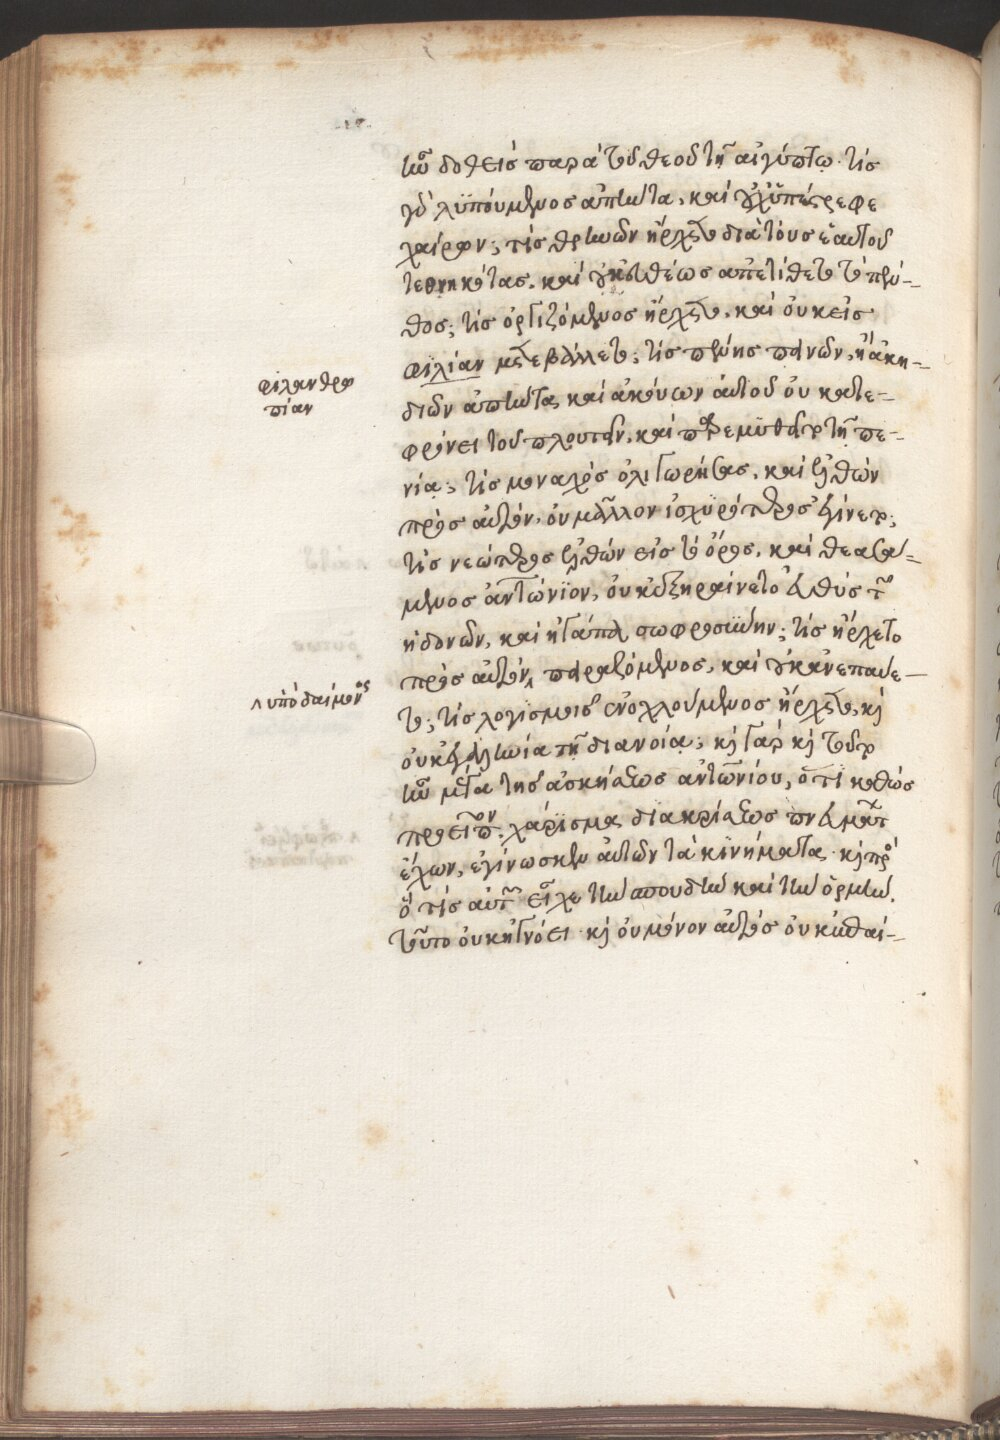 ἦν δοθεὶς παρὰ τοῦ θεοῦ τῇ αἰγύπτῳ. τίς
γὰρ λυπούμενος ἀπήντα, καὶ οὐχ ὑπέστρεφε
χαίρων; τίς θρηνῶν ἤρχετο διὰ τοὺς ἑαυτοῦ
τεθνηκότας, καὶ οὐκ εὐθέως ἀπετίθετο τὸ πέν-
θος; τίς ὀργιζόμενος ἤρχετο, καὶ οὐκ εἰς
φιλίαν μετεβάλλετο; τίς πένης
φιλανθρω
πίαν
διῶν ἀπήντα, καὶ ἀκούων αὐτοῦ οὐ κατε-
φρόνει τοῦ πλούτου, καὶ παρεμυθεῖτο τῇ πε-
νίᾳ; τίς μοναχὸς ὀλιγωρήσας, καὶ ἐλθὼν
πρὸς αὐτόν, οὐ μᾶλλον ἰσχυρότερος ἐγίνετο;
τίς νεώτερος ἐλθὼν εἰς τὸ ὄρος, καὶ θεασά-
μενος ἀντώνιον, οὐκ ἐξηραίνετο εὐθὺς τῶν
ἡδονῶν, καὶ ἠγάπα σωφροσύνην; τίς ἤρχετο
πρὸς αὐτόν, πειραζόμενος, καὶ οὐκ ἀνεπαύε-
ὑπὸ δαίμονος
το; τίς λογισμοῖς ἐνοχλούμενος ἤρχετο, καὶ
οὐκ ἐγαληνία τῇ διανοίᾳ; καὶ γὰρ καὶ τοῦτο
ἦν μέγα τῆς ἀσκήσεως ἀντωνίου, ὅτι καθὼς
προεῖπον, χάρισμα διακρίσεως πνευμάτων
ἔχων, ἐγίνωσκεν αὐτῶν τὰ κινήματα. καὶ πρὸς
ὅ τις αὐτῶν εἶχε τὴν σπουδὴν καὶ τὴν ὁρμήν,
τοῦτο οὐκ ἠγνόει. καὶ οὐ μόνον αὐτὸς οὐκ